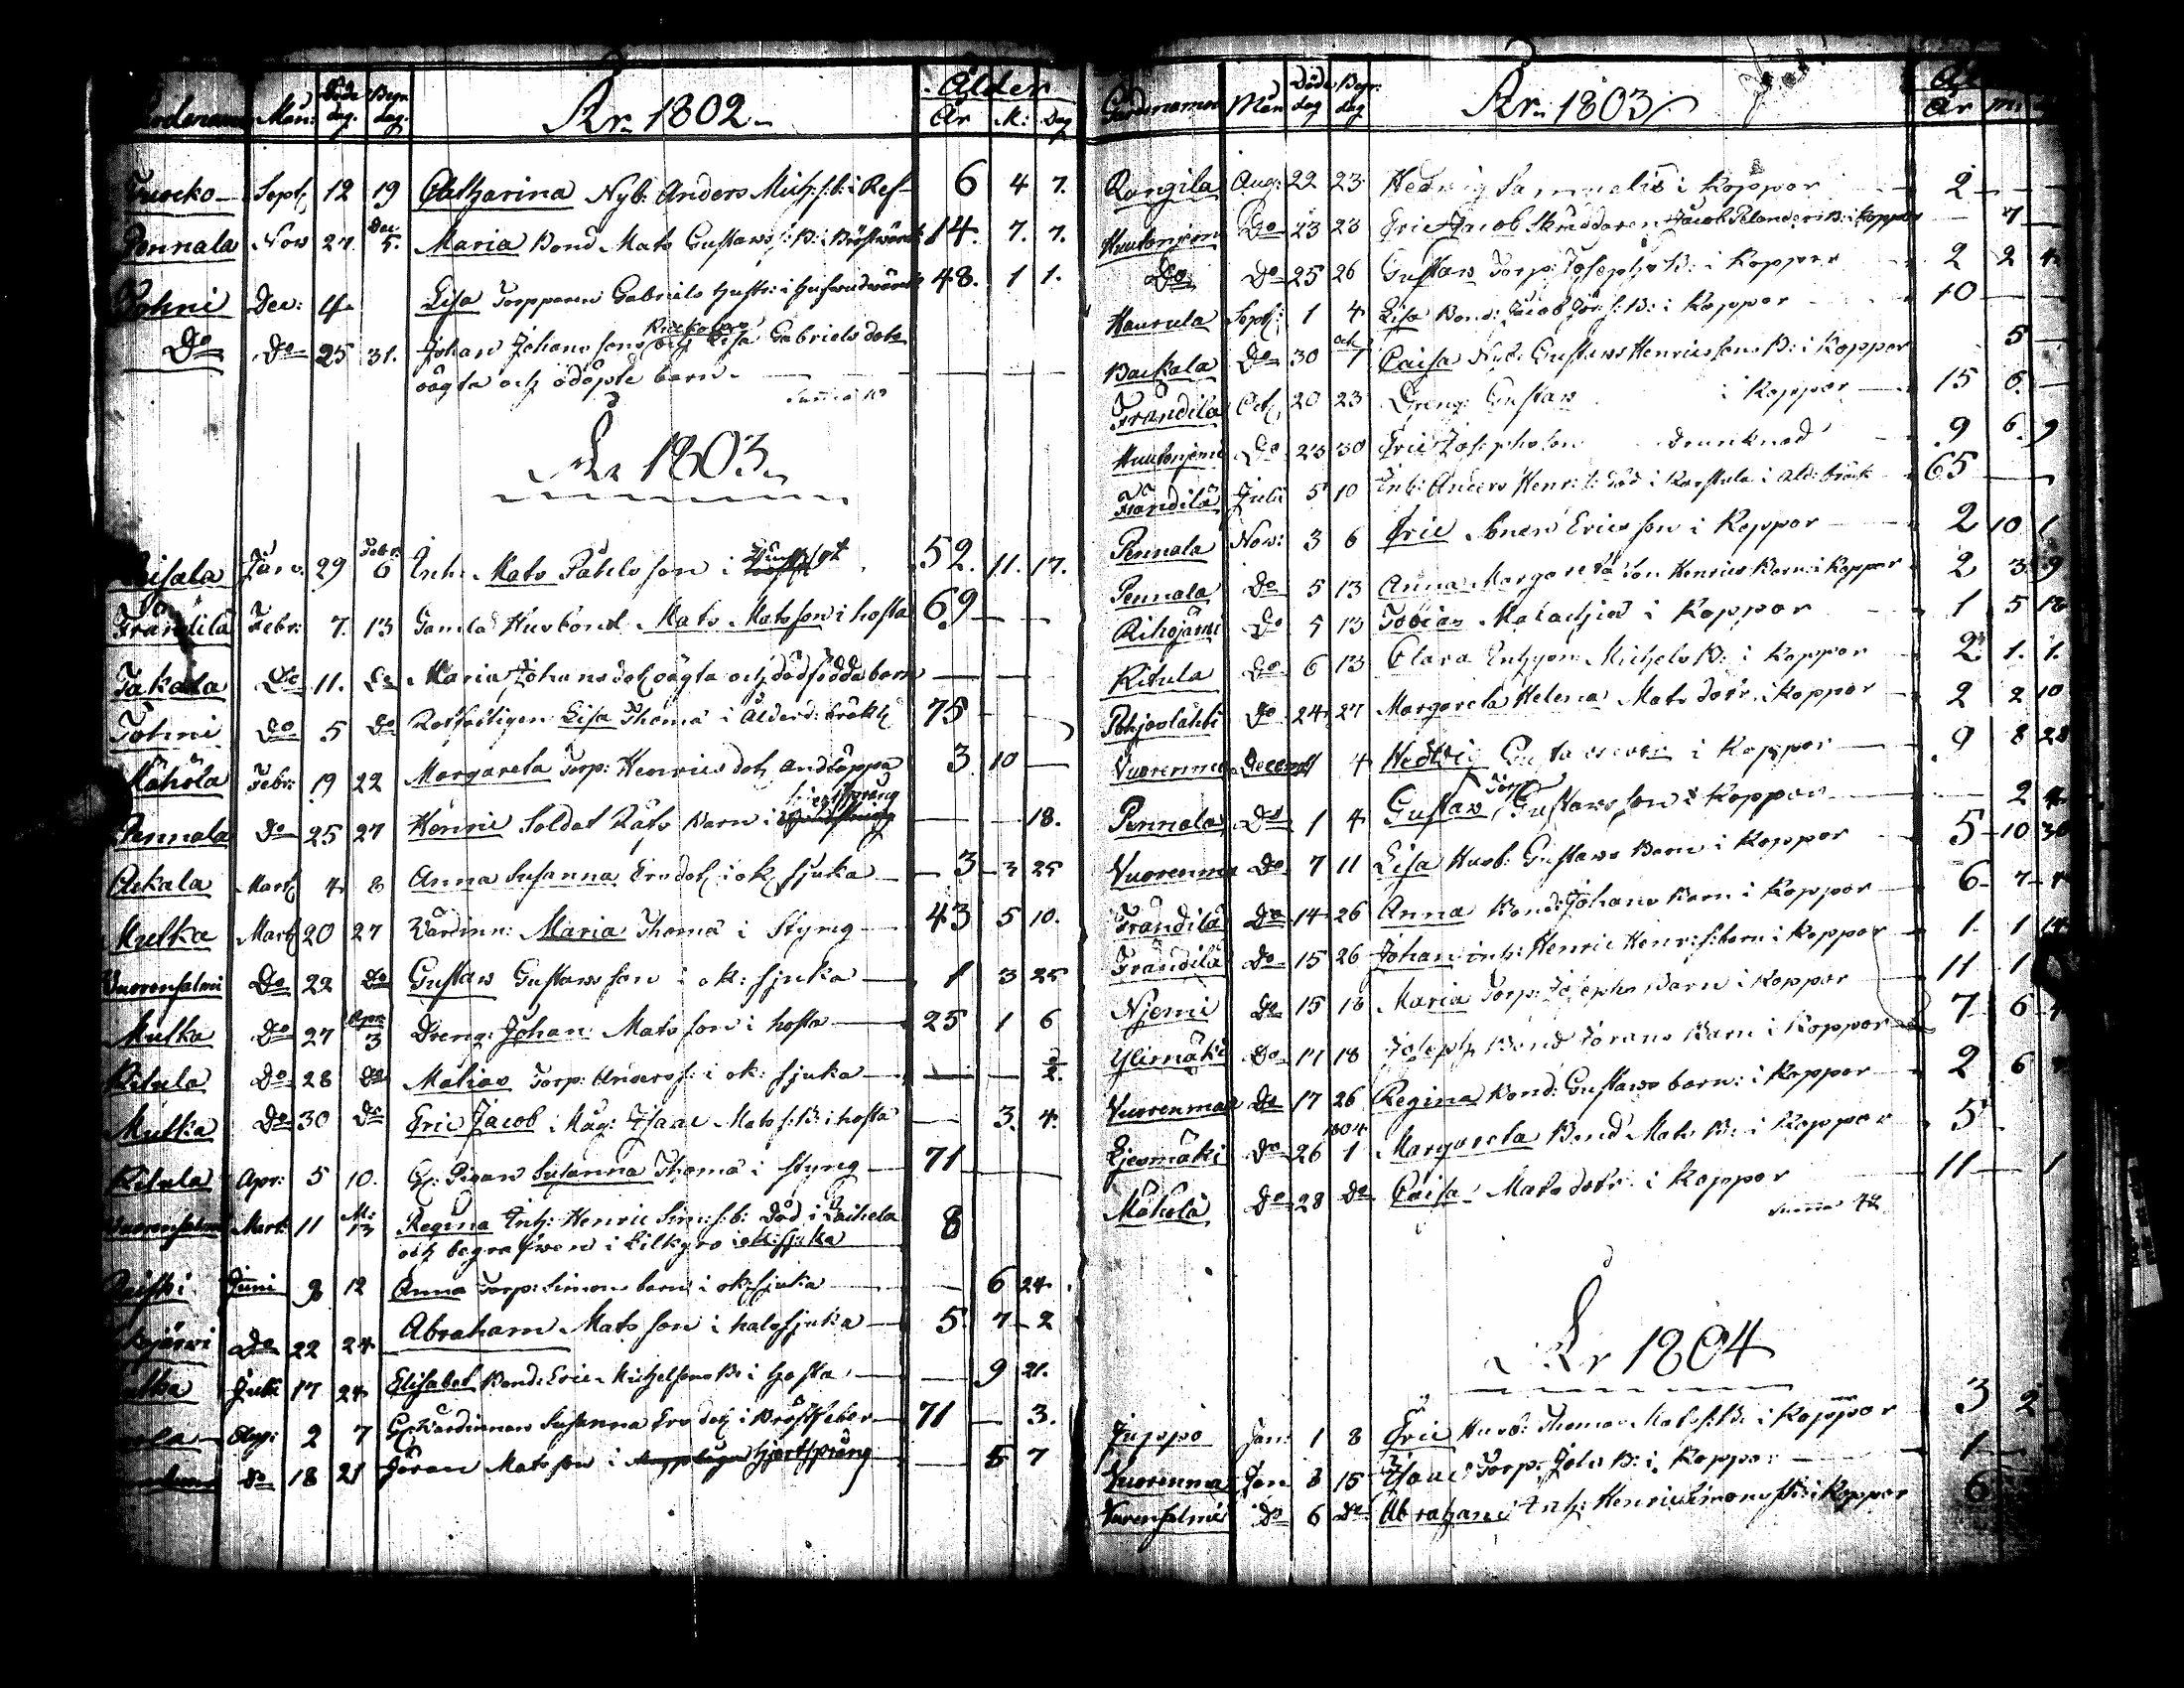 Mån: Döde dag. Begr. dag. År 1802 Ålder År M: Dag
Sept 12 19 Catharina Nyb: Anders Mich: s: b: i Ref 6 4 7.
Pennala Nov 27. Dec. 5. Maria Bond Mats Gustafs s: B: i Bröstwärk 14. 7. 7.
Dec: 4. Lisa Torpparen Gabriels hustr: i hufwudwärk 48. 1 1.
Do Do 25 31. Johan Johansson och Lisa Gabrielsdotr
oägta och odöpte barn
Summa 10
År 1803
Janv: 29 Febr: 6 Inh: Mats Påhlsson i 52. 11. 17.
Frändilä Febr: 7. 13 Gamla Husbond Mats Matsson i hosta 69
Takala Do 11. Do Maria Johansdotr oägta och dödfödda barn
Do 5 Do Rotfattigen Lisa Thoma i Ålderd: bräckl 75
Mähölä Febr: 19 22 Margareta Torp: Henrics dotr andtäppa 3. 10
Pennala Do 25 27 Henric Soldat Räfs Barn i 18.
Askala Mart 4 8 Anna Susanna Ersdotr i ok sjuka 3 3 25
Mulka Mart 20 27 Wärdinn: Maria Thoma i Styng 43 5 10.
Vuorensalmi Do 22 Do Gustav Gustavsson i ok: sjuka 1 3 25
Mulka Do 27 Apr: 3 Dreng: Johan Matsson i hosta 25 1 6
Ritula Do 28 Do Matias Torp: Anders s: i ok: sjuka
Mulka Do 30 Do Eric Jacob Måg: Isaac Mats s: B: i hosta 3. 4.
Ritula Apr: 5 10. Susanna Thoma i styng 71
Vuorensalmi Mart: 11 13 Regina Inh: Henric Sim: s: b: Död i Laihela 8
och begrafwen i Lillkyro i ok: sjuka
Juni 9 12 Anna Torp: Simons barn i ok: sjuka 6 24
Do 22 24 Abraham Matsson i halssjuka 5. 7 2
Juli 17 24 Elisabet Bond: Eric Michelssons B: i hosta 9 21.
Aug: 2 7 Wärdinnan Susanna Ersdotr i Bröstfeber 71 3.
Do 18 21 Jöran Matsson i hjertsprång 5 7
Gårdsnamn Mån Döde dag Begr: dag År 1803 År M:
Rangila Aug: 22 23 Hedvig Sammelis i Koppor 2
Huutoniemi Do 23 23 Eric Jacob Skräddaren Jacob B: i Koppor 7
Do Do 25 26 Gustav Torp: Josephs B: i Koppor 2 2 4
Haurula Sept: 1 4 Lisa Bond: Jacob Jör: s: B: i Koppor 10
Backala Do 30 Oct 7 Caisa Nyb: Gustavs Henricssons B: i Koppor 5
Frändilä Oct 20 23 Dreng: Gustav i Koppor 15 6.
Huutoniemi Do 23 30 Eric Josephsson Drunknad 9 6. 9
Frändilä Juli 5 10 Inh: Anders Henr: s: död i Karstula i Åld: bräck 65
Pennala Nov: 3 6 Eric Ericsson i Koppor 2 10 1
Pennala Do 5 13 Anna Margareta Son Henrics Barn i Koppor 2 3 9
Do 5 13 Tobias Malachias i Koppor 1 5 18
Ritula Do 6 13 Clara Michels B: i Koppor 2 1. 1.
Pohjoslahti Do 24 27 Margareta Helena Matsdotr i Koppor 2 2 10
Vuorenmaa Decemb 1 4 Hedvig i Koppor 9 8 28
Pennala Do 1 4 Gustav Gustavsson i Koppor 2 4
Vuorenmaa Do 7 11 Lisa Husb: Gustavs Barn i Koppor 5 10 30
Frändilä Do 14 26 Anna Bond: Johans Barn i Koppor 6 7
Frändilä Do 15 26 Johan inh: Henric Henr: s: barn i Koppor 1 1 14
Njemi Do 15 18 Maria Torp: Josephs Barn i Koppor 11 1
Ylimäki Do 17 18 Joseph Bond Jörans Barn i Koppor 7 6
Vuorenmaa Do 17 26 Regina Bond: Gustavs barn: i Koppor 2 6
Do 26 1804 1 Margareta Bond Mats B: i Koppor 5
Mäkelä Do 28 Do Caisa Matsdotr i Koppor 11 1
Summa 42
År 1804
Juppo Jan: 1 8 Eric Husb: Thomas Mats s: B: i Koppor 3 2
Vuorenmaa Jan 8 15 Isaac Torp: B: i Koppor 1
Vuorensalmi Do 6 Do Abraham Inh: Henric Simons s: B: i Koppor 6